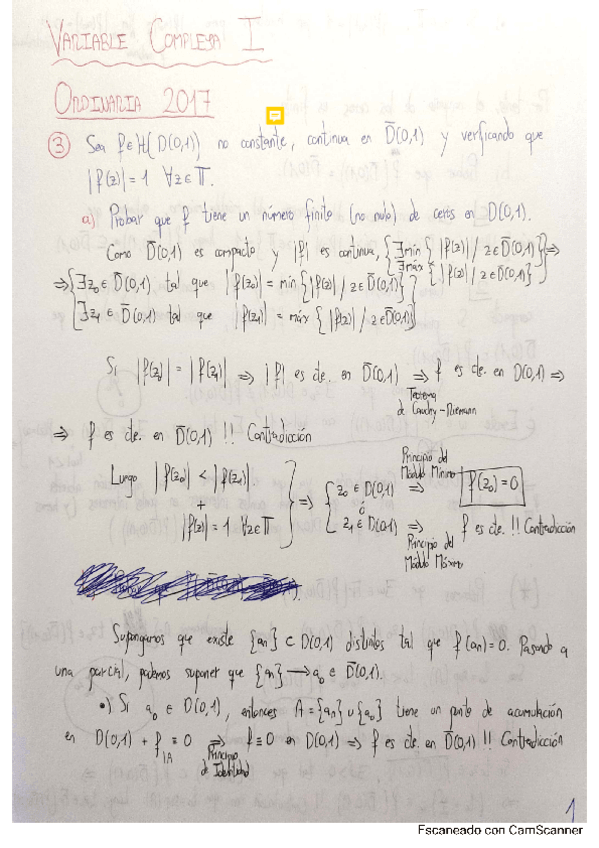 VARIABLE COMPLEJA I
ORDINARIA 2017
③ Sea f∈H(D(0,1)) no constante, continua en D̄(0,1) y verificando que
|f(z)|=1 ∀z∈𝕋.
a) Probar que f tiene un número finito (no nulo) de ceros en D(0,1).
Como D̄(0,1) es compacto y |f| es continua, {∃mín {|f(z)| / z∈D̄(0,1)} ⇒
∃máx {|f(z)| / z∈D̄(0,1)}
⇒ {∃z₀∈D̄(0,1) tal que |f(z₀)| = mín {|f(z)| / z∈D̄(0,1)}
∃z₁∈D̄(0,1) tal que |f(z₁)| = máx {|f(z)| / z∈D̄(0,1)}
Si |f(z₀)| = |f(z₁)| ⇒ |f| es cte. en D̄(0,1) ⇒ f es cte. en D(0,1) ⇒
Teorema
de Cauchy-Riemann
⇒ f es cte. en D̄(0,1) !! Contradicción
Luego |f(z₀)| < |f(z₁)|
+
|f(z)| = 1 ∀z∈𝕋
} ⇒ { z₀∈D(0,1) ⇒ f(z₀)=0
Principio del
Módulo Mínimo
ó
z₁∈D(0,1) ⇒ f es cte. !! Contradicción
Principio del
Módulo Máximo
Supongamos que existe {aₙ} ⊂ D(0,1) distintos tal que f(aₙ)=0. Pasando a
una parcial, podemos suponer que {aₙ} ⟶ a₀ ∈ D̄(0,1).
•) Si a₀ ∈ D(0,1), entonces A={aₙ}∪{a₀} tiene un punto de acumulación
en D(0,1) + f|A ≡ 0 ⇒ f≡0 en D(0,1) ⇒ f es cte. en D̄(0,1) !! Contradicción
Principio
de Identidad
1
Escaneado con CamScanner